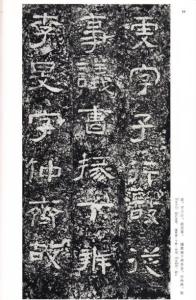 虔字子行故從
事議曹掾下辨
李旻字仲齊故